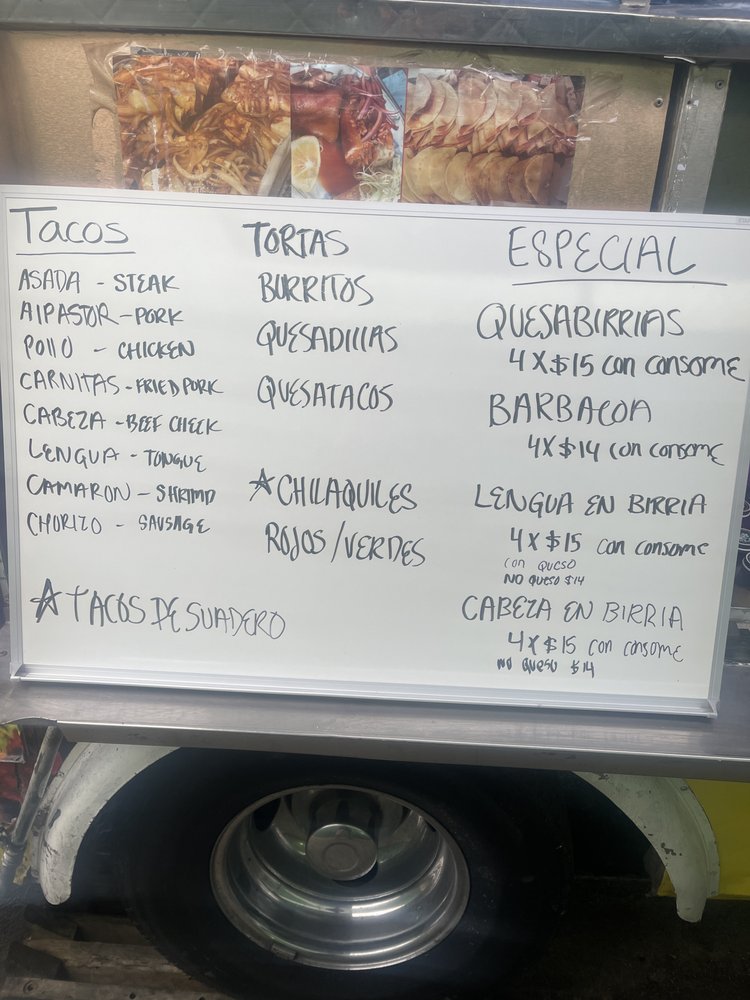 Tacos
ASADA - STEAK
AlPASTOR - PORK
POllO - CHICKEN
CARNITAS - FRIED PORK
CABEZA - BEEF CHECK
LENGUA - TONGUE
CAMARON - SHRIMP
CHORIZO - SAUSAGE
☆ TACOS DE SUADERO
TORTAS
BURRITOS
QUESADIllAS
QUESATACOS
☆ CHILAQUILES
ROJOS/VERDES
ESPECIAL
QUESABIRRIAS
4 X $15 con consome
BARBACOA
4X $14 con consome
LENGUA EN BIRRIA
4 X $15 con consome
con queso
NO queso $14
CABEZA EN BIRRIA
4 X $15 con consome
NO queso $14